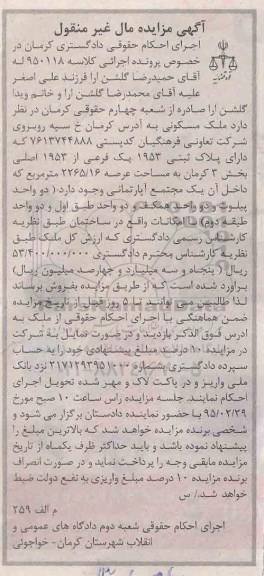 آگهی مزایده مال غیر منقول
اجرای احکام حقوقی دادگستری کرمان در
خصوص پرونده اجرائی کلاسه ۹۵۰۱۱۸ له
آقای حمیدرضا گلشن ارا فرزند علی اصغر
علیه آقای محمدرضا گلشن ارا و خانم ویدا
گلشن ارا صادره از شعبه چهارم حقوقی کرمان در نظر
دارد ملک مسکونی به آدرس کرمان خ سیه روبروی
شرکت تعاونی فرهنگیان کدپستی ۷۶۱۳۷۴۴۸۸۸ که
دارای پلاک ثبتی ۱۹۵۳ یک فرعی از ۱۹۵۳ اصلی
بخش ۳ کرمان به مساحت عرصه ۲۲۶۵/۱۶ مترمربع که
داخل آن یک مجتمع آپارتمانی وجود دارد، ( دو واحد
پیلوت و دو واحد همکف و دو واحد طبق اول و دو واحد
طبقه دوم) با امکانات واقع در ساختمان طبق نظریه
کارشناس رسمی دادگستری که ارزش کل ملک طبق
نظریه کارشناس محترم دادگستری ۵۳/۴۰۰/۰۰۰/۰۰۰
ریال ( پنجاه و سه میلیارد و چهارصد میلیون ریال)
برآورد شده است که از طریق مزایده بفروش برساند
لذا طالبین می توانند تا ۵ روز قبل از تاریخ مزایده
ضمن هماهنگی با اجرای احکام حقوقی از ملک به
آدرس فوق الذکر بازدید و در صورت تمایل به شرکت
در مزایده ۱۰ درصد مبلغ پیشنهادی خود را به حساب
سپرده دادگستری بشماره ۲۱۷۱۲۹۳۹۵۱۰۰۰ نزد بانک
ملی واریز و در پاکت لاک و مهر شده تحویل اجرای
احکام نمایند. جلسه مزایده راس ساعت ۱۰ صبح مورخ
۹۵/۰۲/۲۹ با حضور نماینده دادستان برگزار می شود و
شخصی برنده مزایده خواهد شد که بالاترین مبلغ را
پیشنهاد نموده باشد و باید حداکثر ظرف یکماه از تاریخ
مزایده مابقی وجه را پرداخت نماید و در صورت انصراف
برنده مزایده ۱۰ درصد مبلغ واریزی به نفع دولت ضبط
خواهد شد./ س
م الف ۲۵۹
اجرای احکام حقوقی شعبه دوم دادگاه های عمومی و
انقلاب شهرستان کرمان- خواجوئی